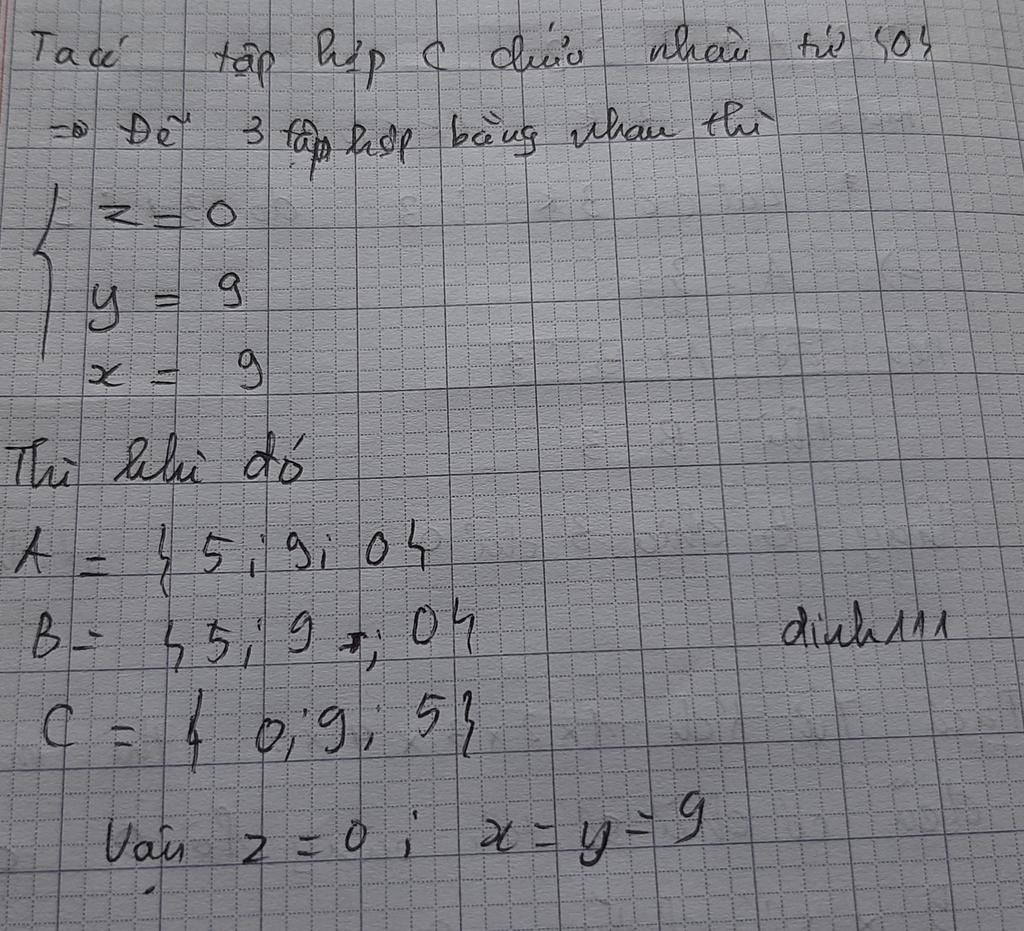 Ta có tập hợp C chứa nhân tử {0}
=> Để 3 tập hợp bằng nhau thì
z = 0
y = 9
x = 9
Thì khi đó
A = { 5; 9; 0}
B = { 5; 9 ; 0}
dinh111
C = { 0; 9; 5}
Vậy z = 0; x = y = 9